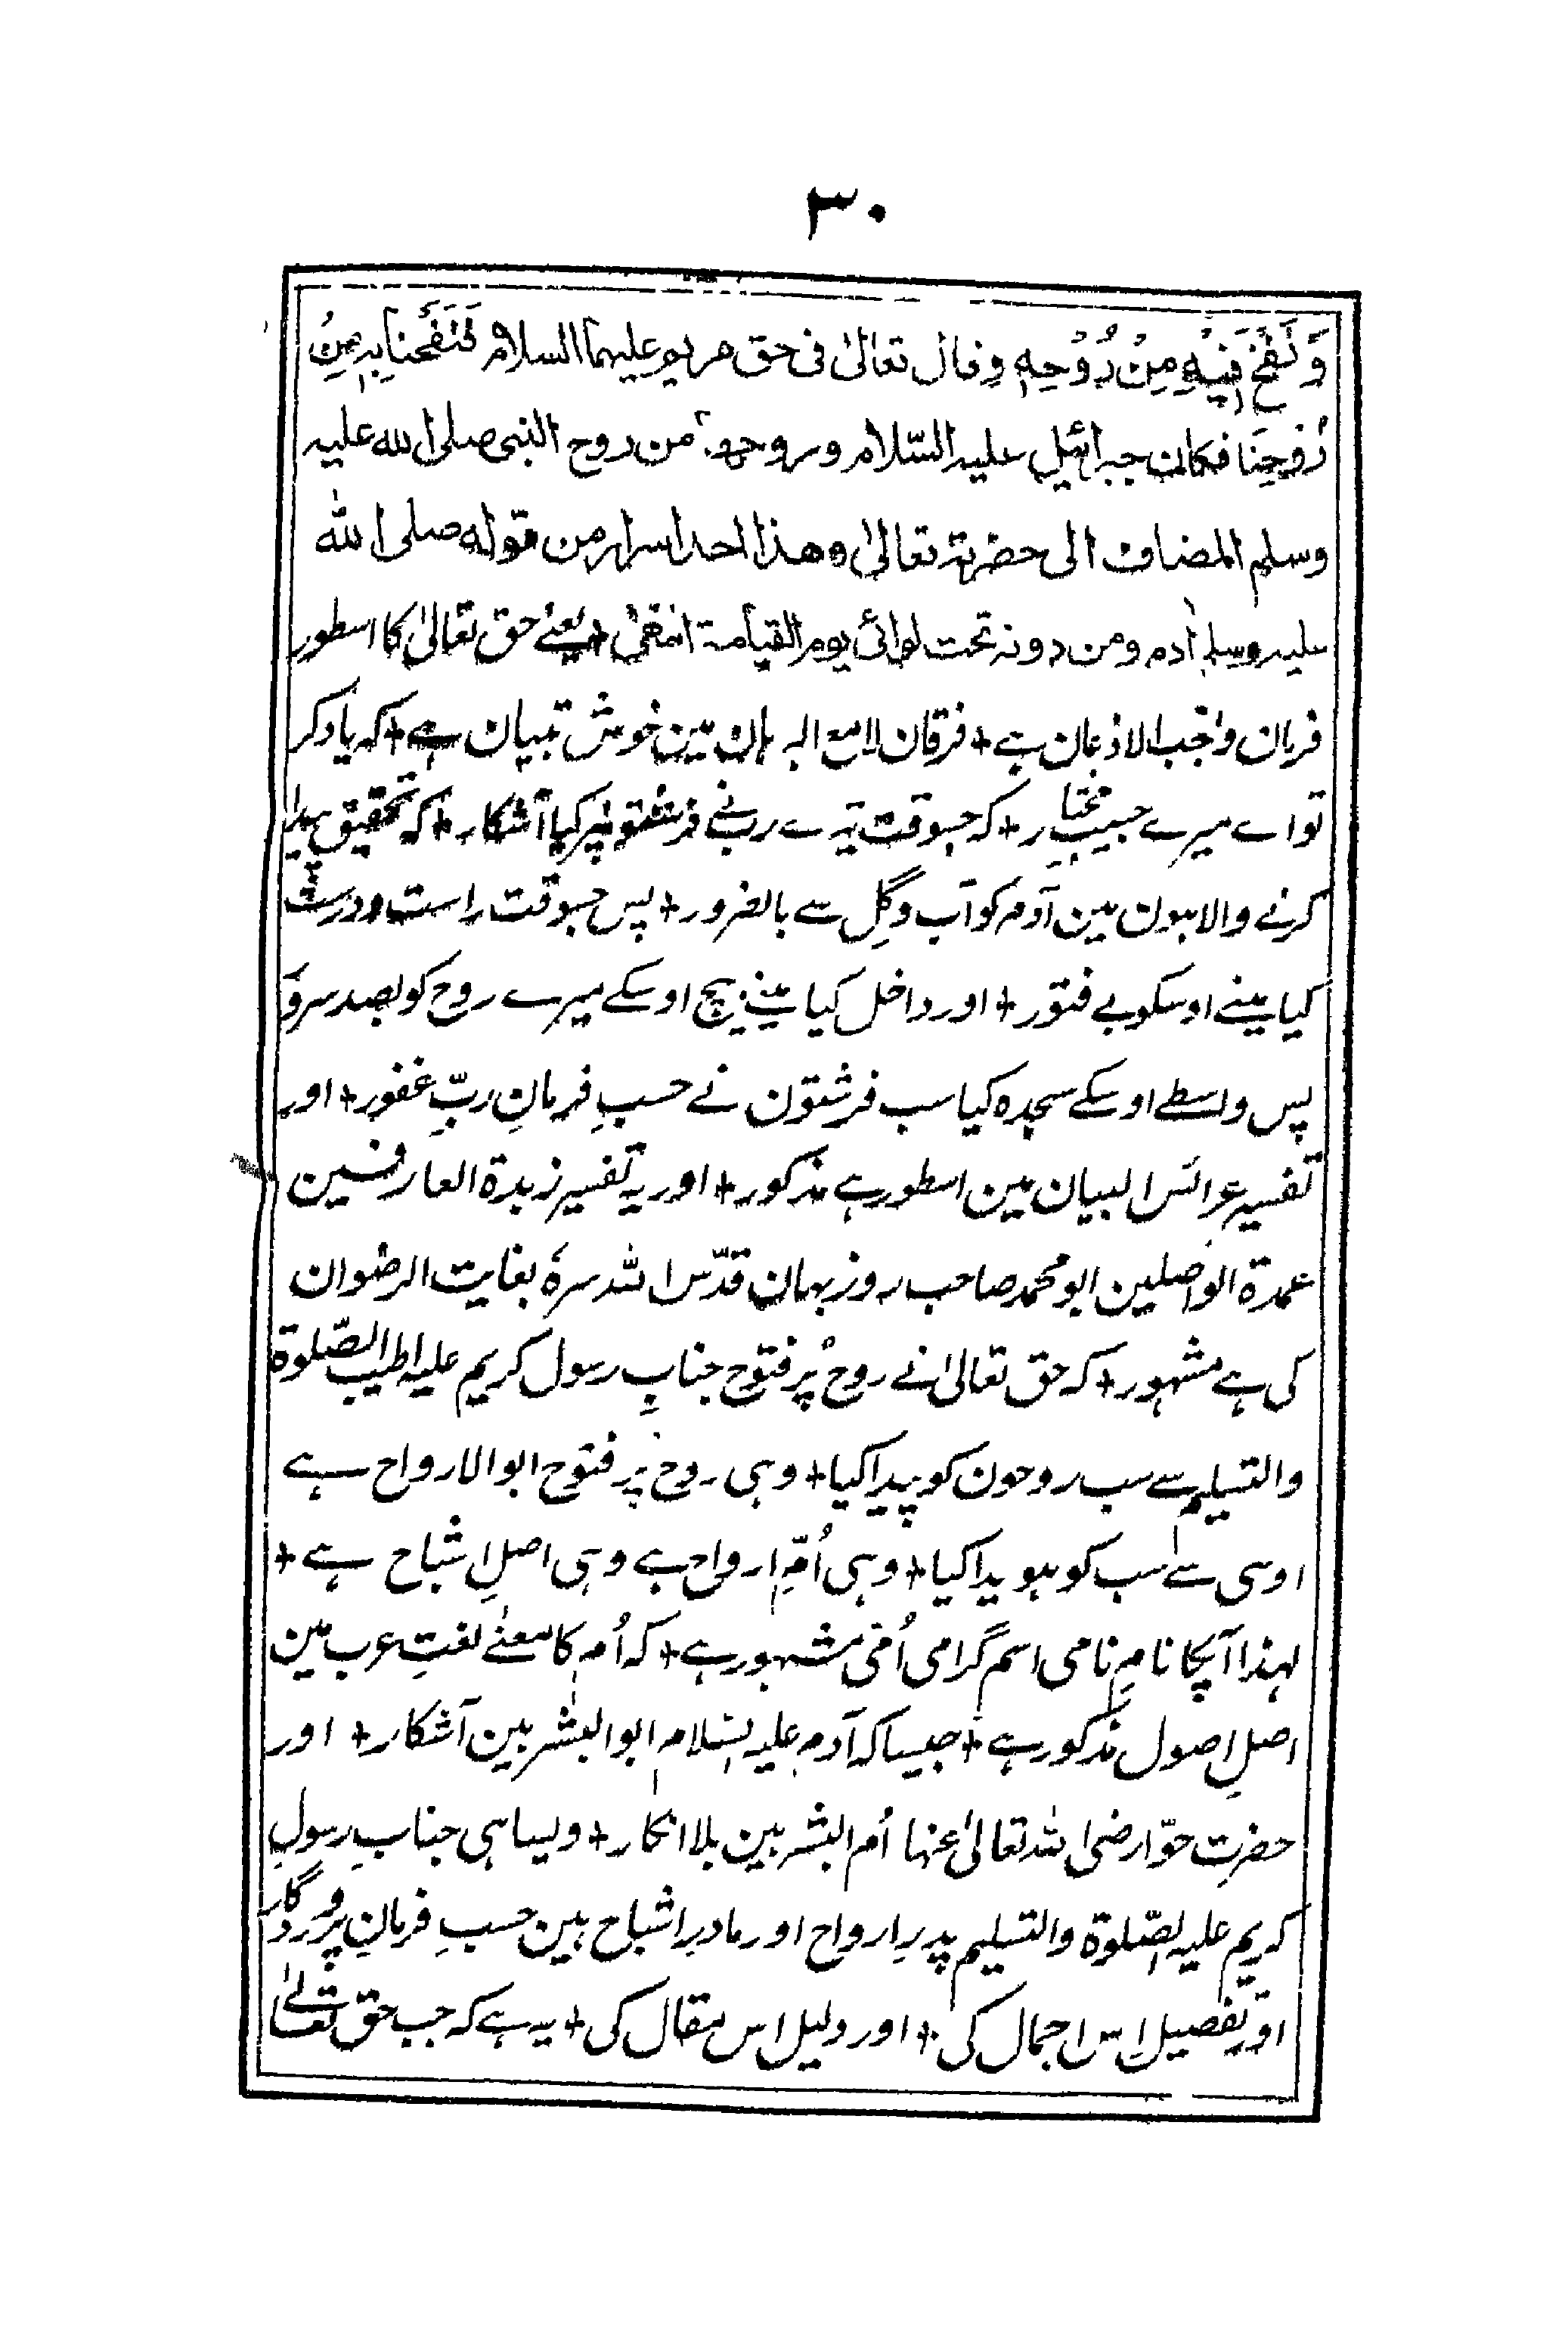 ۳۰
وَنَفَخَ فِیْهِ مِنْ رُوْحِهٖ وقال تعالیٰ فی حق مریم علیہما السلام فَنَفَخْنَا فِیهِ مِنْ
رُوْحِنَا فکان جبرائیل علیہ السّلام وروحھ من روح النبی صلی اللہ علیہ
وسلم المضاف الی حضرتہ تعالیٰ وھذا احد اسرار من قولہ صلی اللہ
علیہ وسلم اٰدم ومن دونہ تحت لوائی یوم القیامۃ انتھیٰ + یعنے حق تعالیٰ کا اسطور
فرمان واجب الاذعان ہے + فرقان لامع البرہان مین خوش تبیان ہے + کہ یاد کر
تو اے میرے حبیب مختار + کہ جسوقت تیرے رب نے فرشتونپر کیا آشکار + کہ تحقیق پیدا
کرنے والا ہون مین آدم کو آب وگِل سے بالضرور + پس جسوقت راست ودرست
کیا مینے اوسکو بے فتور + اور داخل کیا مینے بیچ اوسکے میرے روح کو بصد سرور
پس واسطے اوسکے سجدہ کیا سب فرشتون نے حسبِ فرمانِ ربِّ غفور + اور
تفسیر عرائس البیان مین اسطور ہے مذکور + اور یہ تفسیر زبدۃ العارفین
عمدۃ الواصلین ابو محمد صاحب روز بہان قدّس اللہ سرہٗ بغایت الرضوان
کی ہے مشہور + کہ حق تعالیٰ نے روح پُر فتوح جنابِ رسول کریم علیہ اطیب الصّلوۃ
والتسلیم سے سب روحون کو پیدا کیا + وہی روح پُر فتوح ابوالارواح ہے
اوسی سے سب کو ہویدا کیا + وہی اُمِّ ارواح ہے وہی اصلِ اشباح ہے +
لہذا آپکا نامِ نامی اسم گرامی اُمّی مشہور ہے + کہ اُم کا معنےٰ لغتِ عرب مین
اصلِ اصول مذکور ہے + جیسا کہ آدم علیہ السّلام ابوالبشر ہین آشکار + اور
حضرتِ حوّا رضی اللہ تعالیٰ عنہا اُم البشر ہین بلا انکار + ویسا ہی جنابِ رسولِ
کریم علیہ الصّلوۃ والتسلیم پدرِ ارواح اور مادرِ اشباح ہین حسبِ فرمانِ پروردگار
اور تفصیل اِس اجمال کی + اور دلیل اس مقال کی + یہ ہے کہ جب حق تعالےٰ